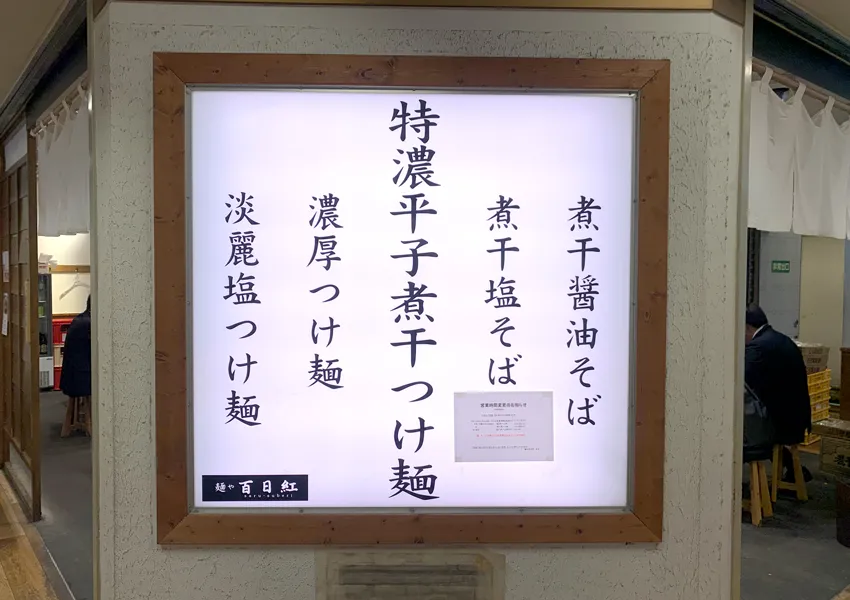 煮干醤油そば
煮干塩そば
特濃平子煮干つけ麺
濃厚つけ麺
淡麗塩つけ麺
麺や 百日紅
saru-suberi
営業時間変更のお知らせ